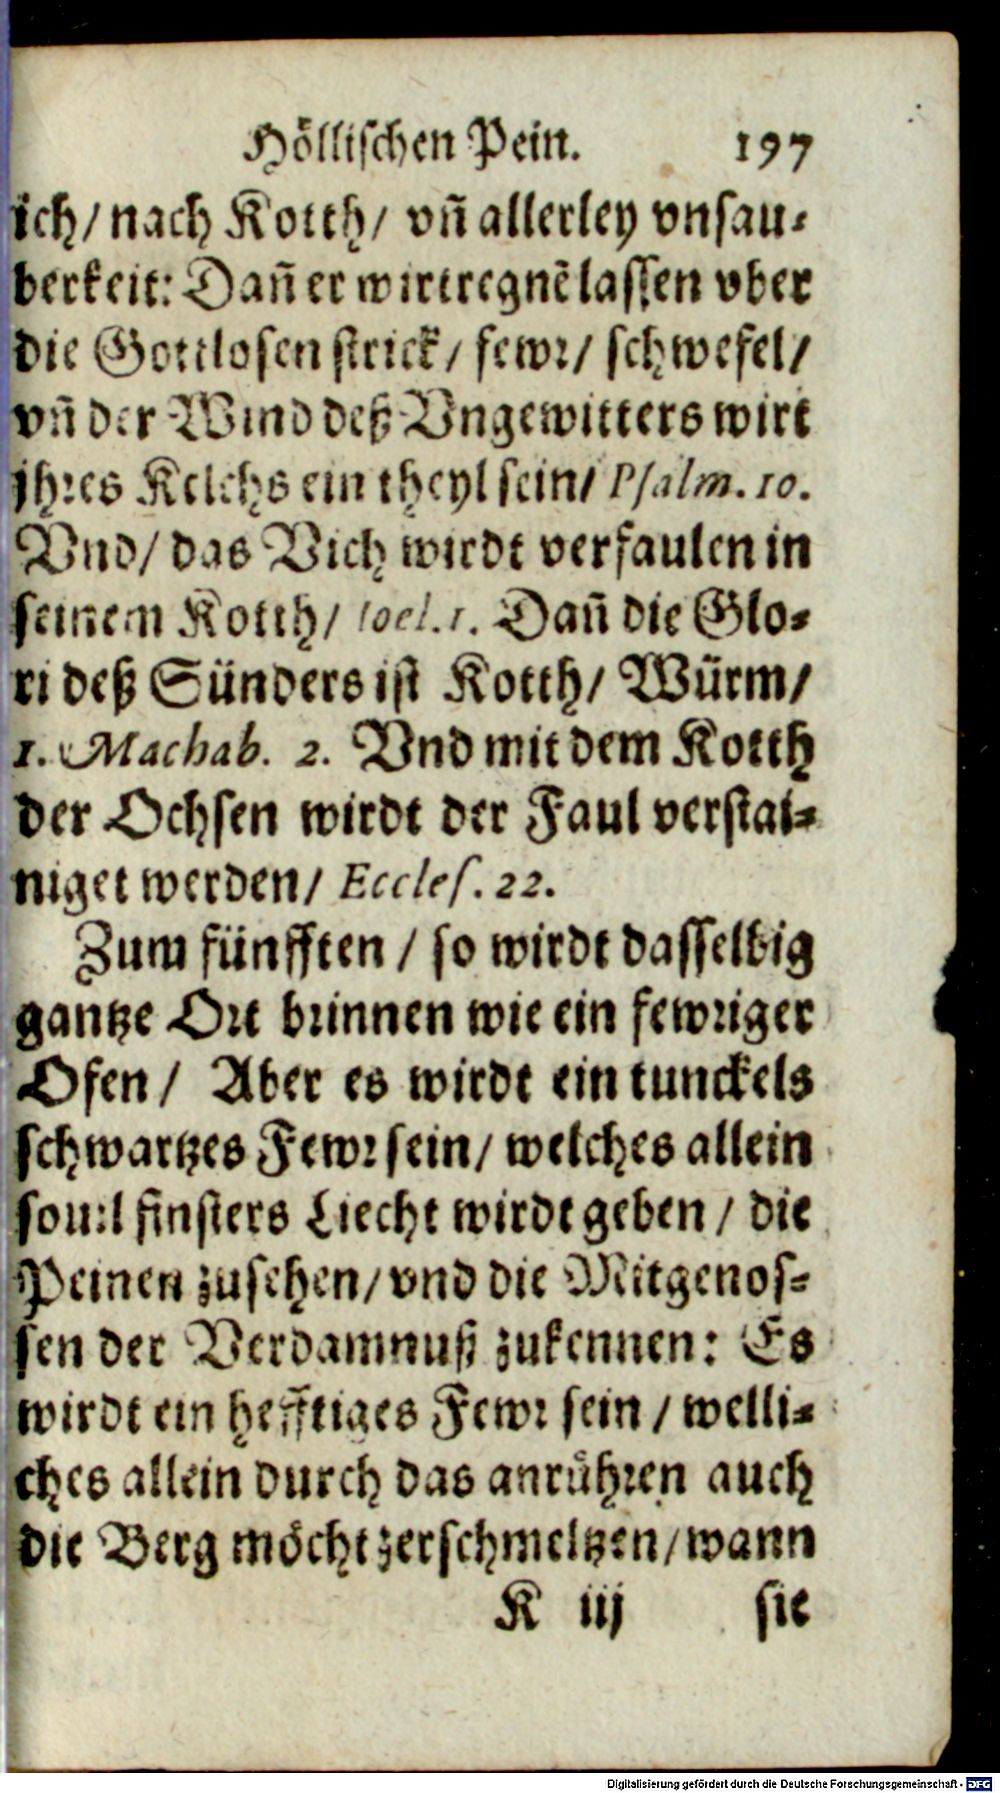 Höllischen Pein. 197
ich/ nach Kotth/ vñ allerley vnsau-
berkeit: Dañ er wirt regnẽ lassen vber
die Gottlosen strick/ fewr/ schwefel/
vñ der Wind deß Vngewitters wirt
jhres Kelchs ein theyl sein/ Psalm. 10.
Vnd/ das Vich wirdt verfaulen in
seinem Kotth/ Ioel. 1. Dañ die Glo-
ri deß Sünders ist Kotth/ Würm/
1. Machab. 2. Vnd mit dem Kotth
der Ochsen wirdt der Faul verstai-
niget werden/ Eccles. 22.
Zum fünfften / so wirdt dasselbig
gantze Ort brinnen wie ein fewriger
Ofen / Aber es wirdt ein tunckels
schwartzes Fewr sein/ welches allein
souil finsters Liecht wirdt geben / die
Peinen zusehen/ vnd die Mitgenos-
sen der Verdamnuß zukennen: Es
wirdt ein hefftiges Fewr sein / welli-
ches allein durch das anrühren auch
die Berg möcht zerschmeltzen/ wann
K iij sie
Digitalisierung gefördert durch die Deutsche Forschungsgemeinschaft - DFG